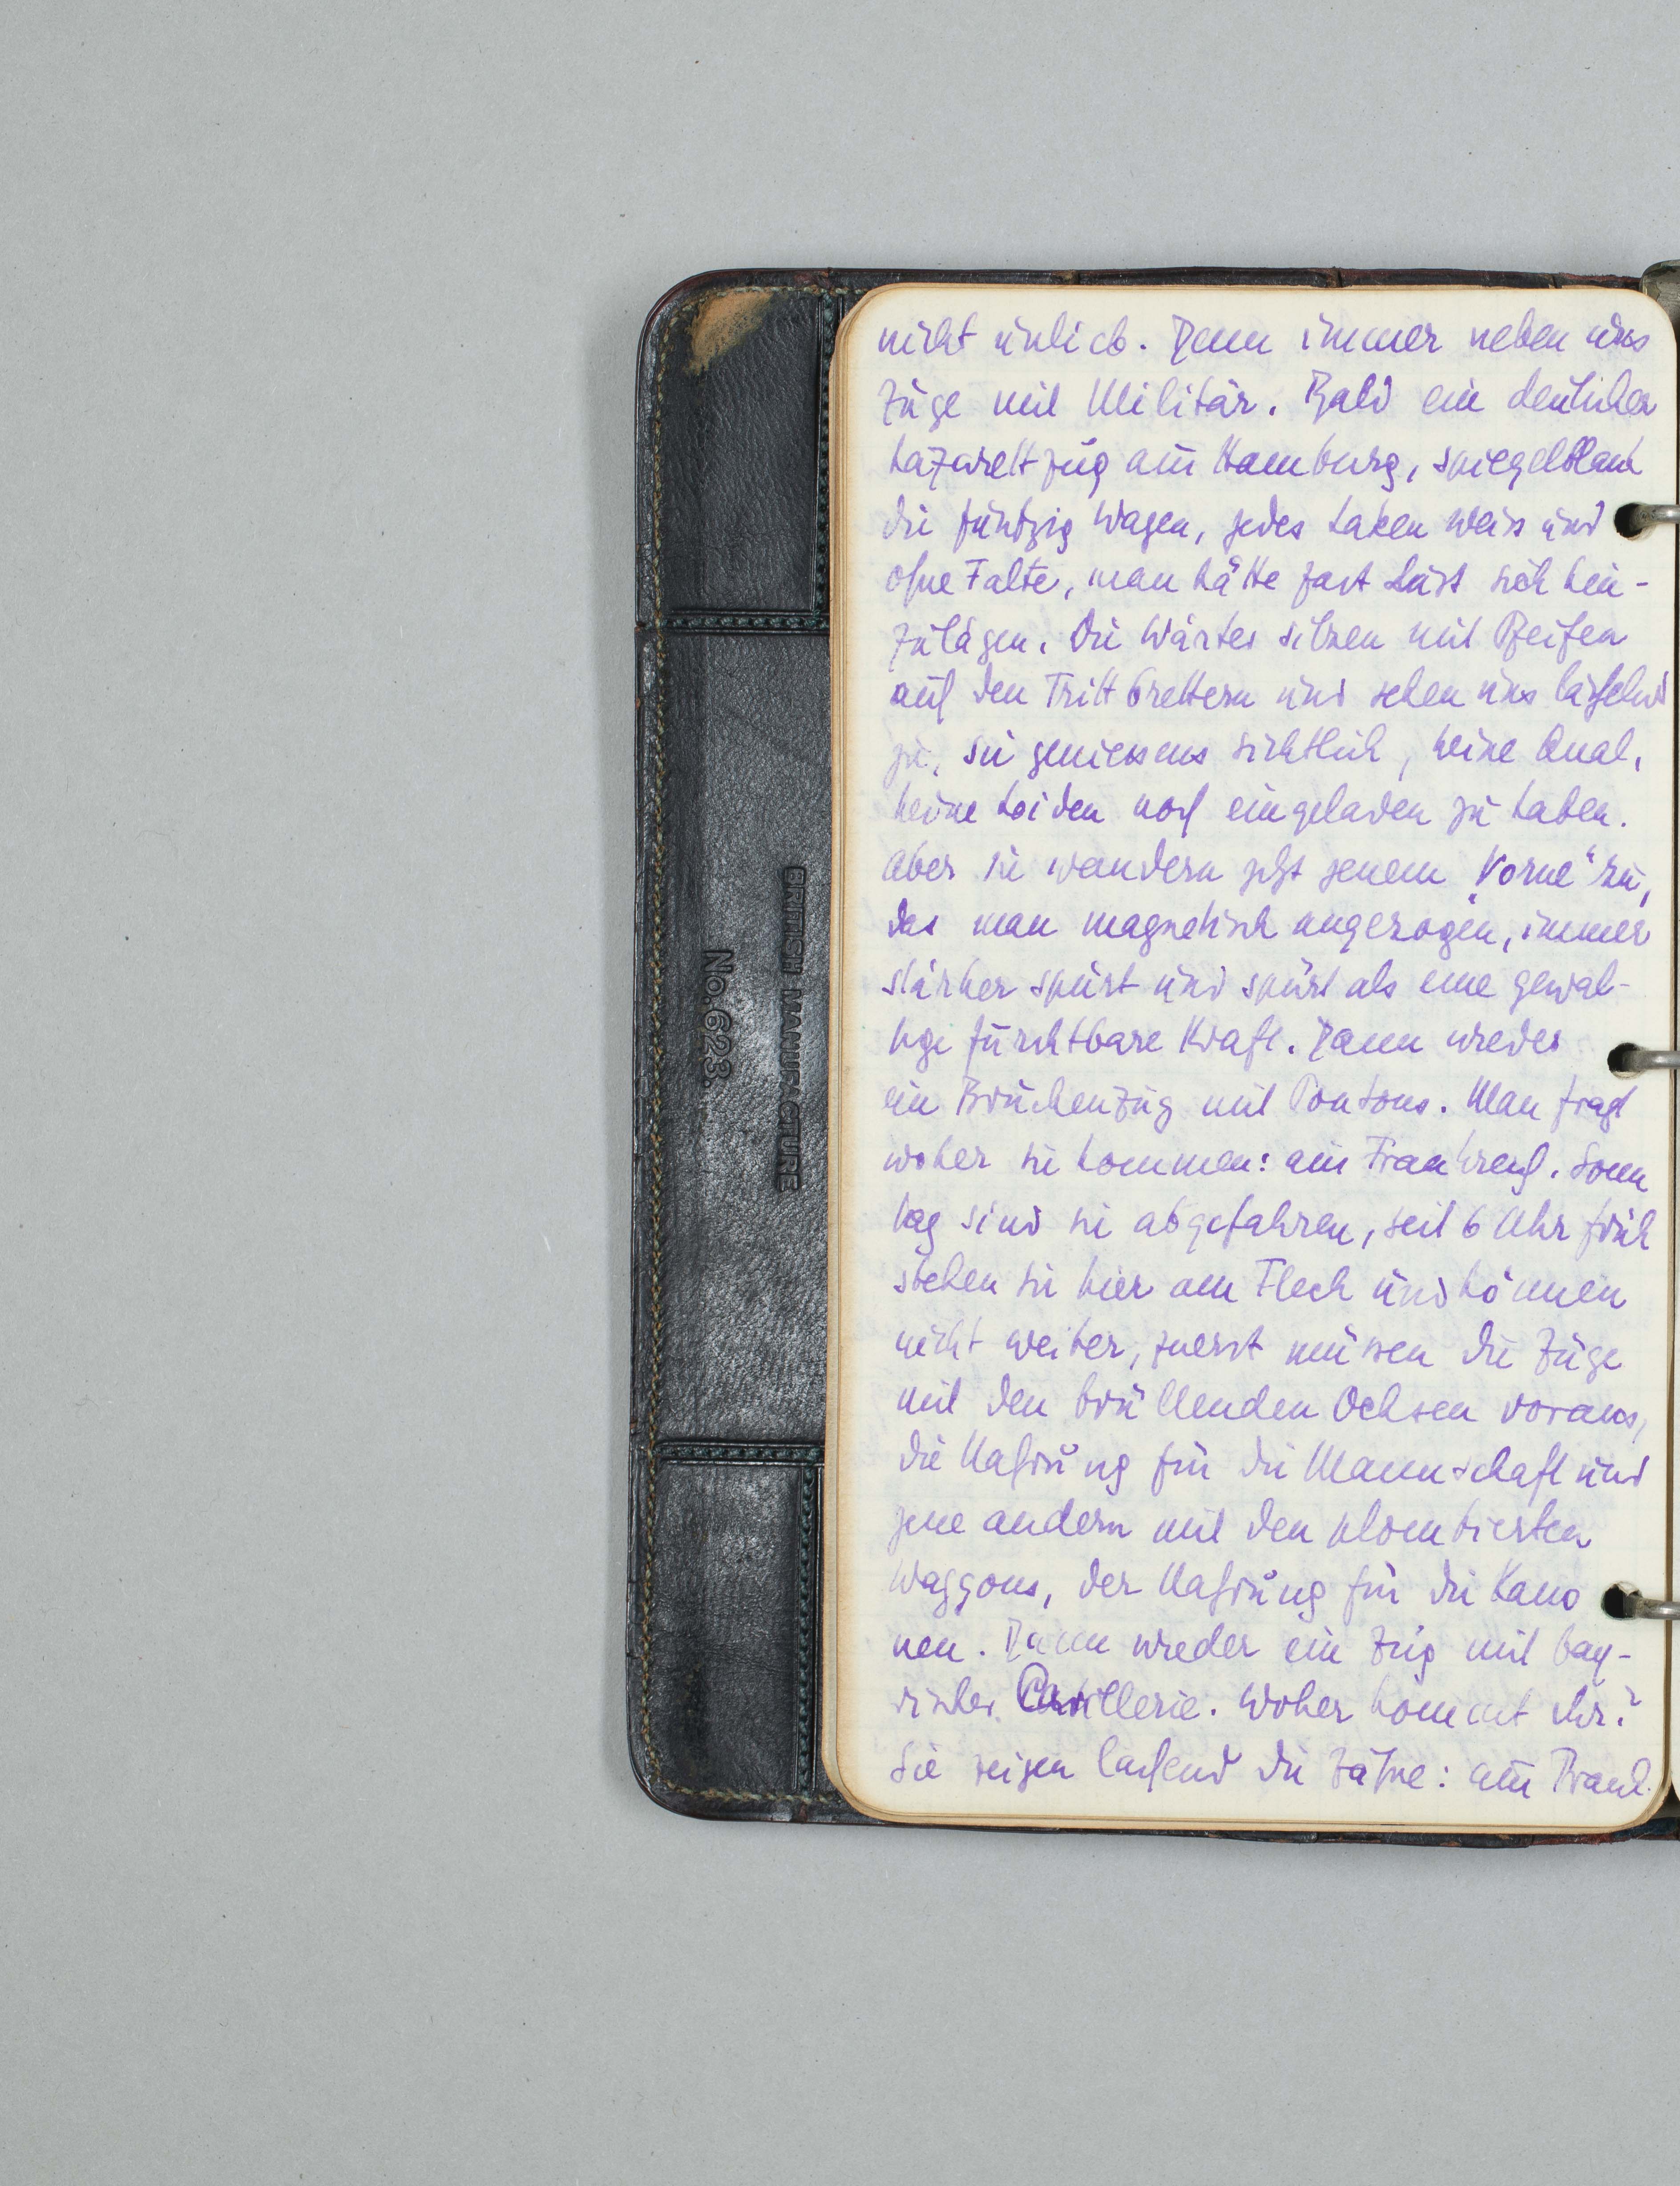 nicht unlieb. Denn immer neben uns
Züge mit Militär. Bald ein deutscher
Lazarettzug aus Hamburg, spiegelblank
die fünfzig Wagen, jedes Laken weiss und
ohne Falte, man hätte fast Lust sich hin-
zulegen. Die Wärter sitzen mit Pfeifen
auf den Trittbrettern und sehen uns lächelnd
zu, sie geniessens sichtlich, keine Qual,
keine Leiden noch eingeladen zu haben.
Aber sie wandern jetzt jenem „Vorne“ zu,
das man magnetisch angezogen, immer
stärker spürt und spürt als eine gewal-
tige furchtbare Kraft. Dann wieder
ein Brückenzug mit Pontons. Man fragt
woher sie kommen: aus Frankreich. Sonn
tag sind sie abgefahren, seit 6 Uhr früh
stehen sie hier am Fleck und können
nicht weiter, zuerst müssen die Züge
mit den brüllenden Ochsen voraus,
die Nahrung für die Mannschaft und
jene andern mit den plombierten
Waggons, der Nahrung für die Kano
nen. Dann wieder ein Zug mit bay-
rischer Artillerie. Woher kommt ihr?
Sie zeigen lachend die Zähne: aus Frank
BRITISH MANUFACTURE
No. 623.